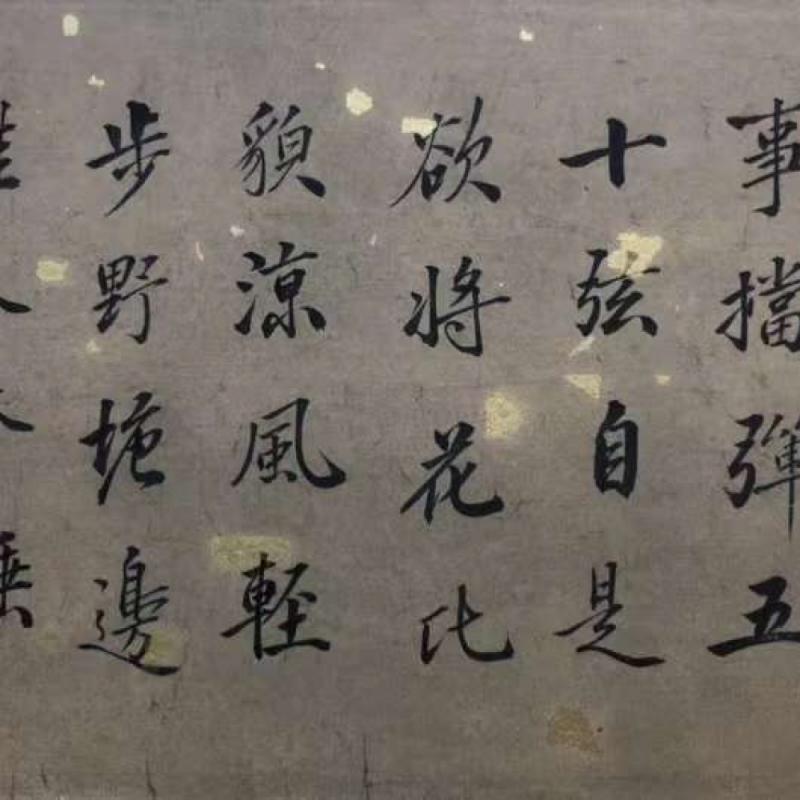 事擋彈五
十弦自是
欲將花比
貌涼風輕
步野塘邊
垂